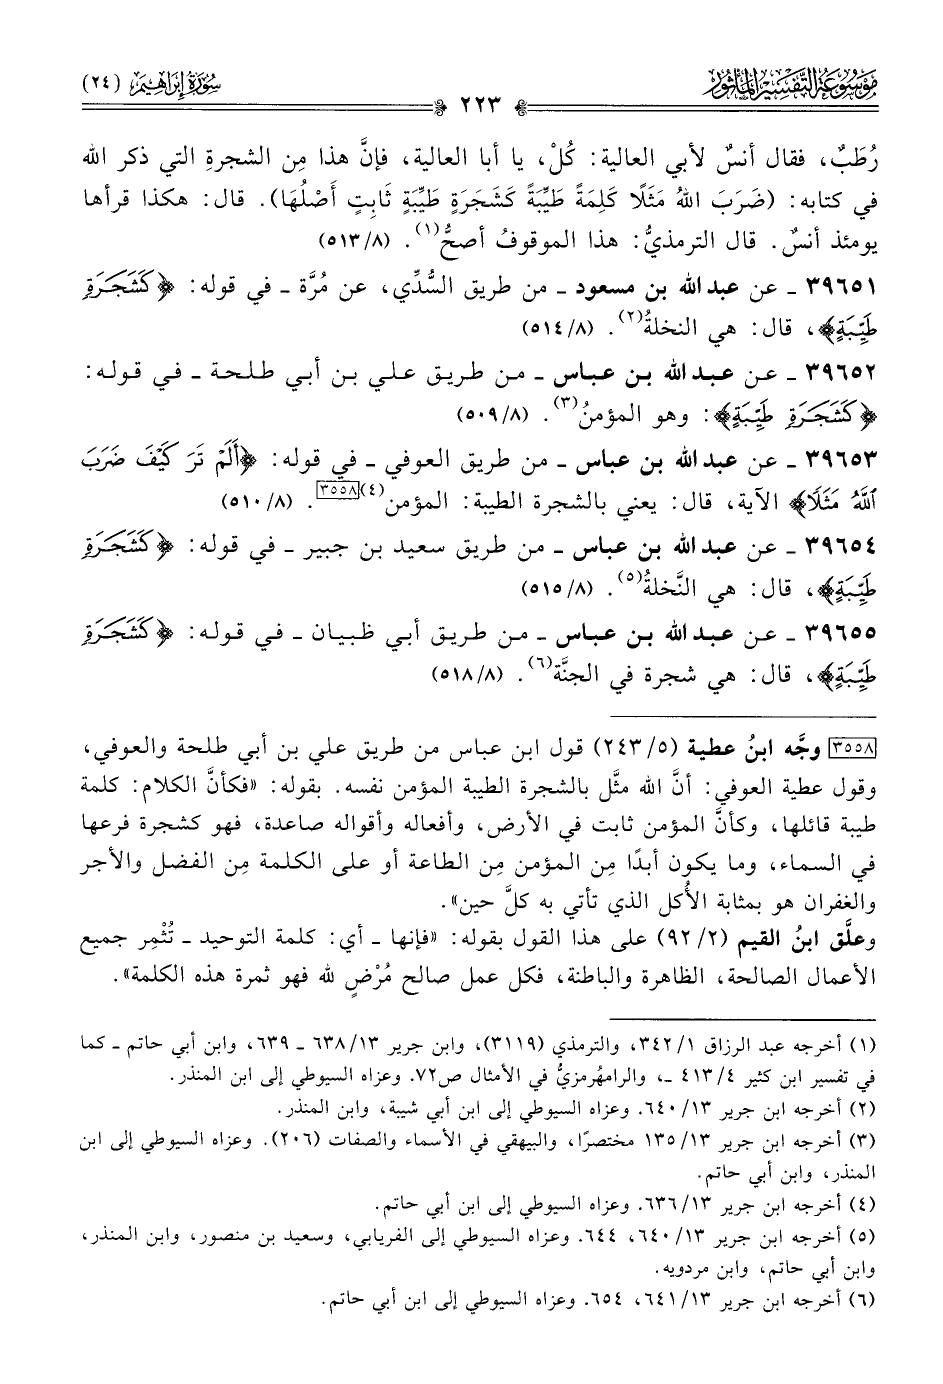 مَوْسُوعَةُ التَّفْسِيرِ المَأْثُورِ
سُورَةُ إِبْرَاهِيمَ (٢٤)
٢٢٣
رُطَبٌ، فقال أنسٌ لأبي العالية: كُلْ، يا أبا العالية، فإنَّ هذا مِن الشجرةِ التي ذكر الله
في كتابه: (ضَرَبَ اللهُ مَثَلًا كَلِمَةً طَيِّبَةً كَشَجَرَةٍ طَيِّبَةٍ ثَابِتٍ أَصْلُهَا). قال: هكذا قرأها
يومئذ أنسٌ. قال الترمذيُّ: هذا الموقوفُ أصحُّ(١). (٥١٣/٨)
٣٩٦٥١ ـ عن عبد الله بن مسعود ـ من طريق السُّدِّي، عن مُرَّة ـ في قوله: ﴿كَشَجَرَةٍ
طَيِّبَةٍ﴾، قال: هي النخلةُ(٢). (٥١٤/٨)
٣٩٦٥٢ ـ عن عبد الله بن عباس ـ من طريق علي بن أبي طلحة ـ في قوله:
﴿كَشَجَرَةٍ طَيِّبَةٍ﴾: وهو المؤمنُ(٣). (٥٠٩/٨)
٣٩٦٥٣ ـ عن عبد الله بن عباس ـ من طريق العوفي ـ في قوله: ﴿أَلَمْ تَرَ كَيْفَ ضَرَبَ
ٱللَّهُ مَثَلًا﴾ الآية، قال: يعني بالشجرة الطيبة: المؤمن(٤)[٣٥٥٨]. (٥١٠/٨)
٣٩٦٥٤ ـ عن عبد الله بن عباس ـ من طريق سعيد بن جبير ـ في قوله: ﴿كَشَجَرَةٍ
طَيِّبَةٍ﴾، قال: هي النَّخلةُ(٥). (٥١٥/٨)
٣٩٦٥٥ ـ عن عبد الله بن عباس ـ من طريق أبي ظبيان ـ في قوله: ﴿كَشَجَرَةٍ
طَيِّبَةٍ﴾، قال: هي شجرة في الجنَّة(٦). (٥١٨/٨)
[٣٥٥٨] وجَّه ابنُ عطية (٢٤٣/٥) قول ابن عباس من طريق علي بن أبي طلحة والعوفي،
وقول عطية العوفي: أنَّ الله مثَّل بالشجرة الطيبة المؤمن نفسه. بقوله: «فكأنَّ الكلام: كلمة
طيبة قائلها، وكأنَّ المؤمن ثابت في الأرض، وأفعاله وأقواله صاعدة، فهو كشجرة فرعها
في السماء، وما يكون أبدًا مِن المؤمن مِن الطاعة أو على الكلمة مِن الفضل والأجر
والغفران هو بمثابة الأُكل الذي تأتي به كلَّ حين».
وعلَّق ابنُ القيم (٩٢/٢) على هذا القول بقوله: «فإنها ـ أي: كلمة التوحيد ـ تُثْمِر جميع
الأعمال الصالحة، الظاهرة والباطنة، فكل عمل صالح مُرْضٍ لله فهو ثمرة هذه الكلمة».
(١) أخرجه عبد الرزاق ٣٤٢/١، والترمذي (٣١١٩)، وابن جرير ٦٣٨/١٣ ـ ٦٣٩، وابن أبي حاتم ـ كما
في تفسير ابن كثير ٤١٣/٤ ـ، والرامهُرمزيُّ في الأمثال ص٧٢. وعزاه السيوطي إلى ابن المنذر.
(٢) أخرجه ابن جرير ٦٤٠/١٣. وعزاه السيوطي إلى ابن أبي شيبة، وابن المنذر.
(٣) أخرجه ابن جرير ١٣٥/١٣ مختصرًا، والبيهقي في الأسماء والصفات (٢٠٦). وعزاه السيوطي إلى ابن
المنذر، وابن أبي حاتم.
(٤) أخرجه ابن جرير ٦٣٦/١٣. وعزاه السيوطي إلى ابن أبي حاتم.
(٥) أخرجه ابن جرير ٦٤٠/١٣، ٦٤٤. وعزاه السيوطي إلى الفريابي، وسعيد بن منصور، وابن المنذر،
وابن أبي حاتم، وابن مردويه.
(٦) أخرجه ابن جرير ٦٤١/١٣، ٦٥٤. وعزاه السيوطي إلى ابن أبي حاتم.